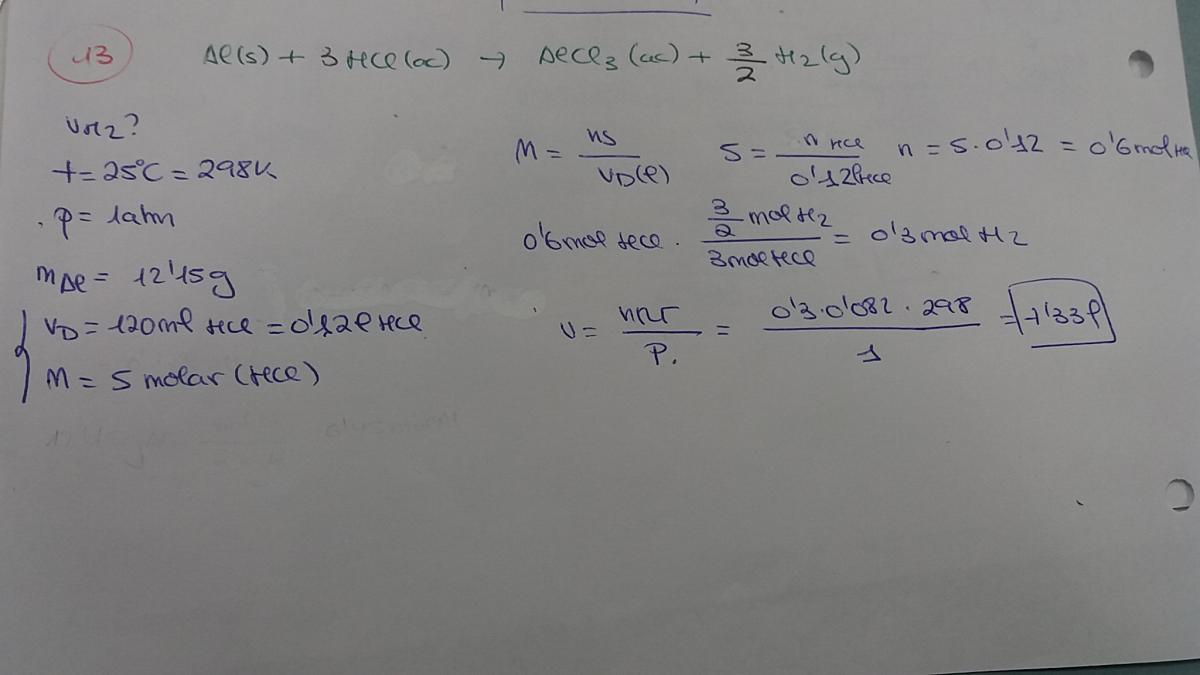 13 Al(s) + 3 HCl(ac) → AlCl₃(ac) + 3/2 H₂(g)
VH₂?
t = 25ºC = 298K
p = 1atm
mAl = 12'15g
VD = 120ml HCl = 0'12l HCl
M = 5 molar (HCl)
M = ns / VD(l) 5 = n HCl / 0'12l HCl n = 5 · 0'12 = 0'6mol HCl
0'6mol HCl · 3/2 mol H₂ / 3mol HCl = 0'3mol H₂
V = nRT / P. = 0'3 · 0'082 · 298 / 1 = 7'33l